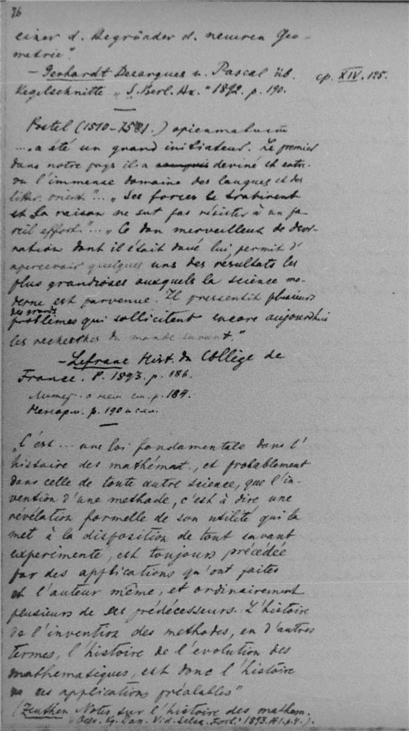 26
einer d. Begründer d. neueren Geo-
metrie".
– Gerhardt Desargues u. Pascal üb. cp. XIV. 125.
Kegelschnitte „S. Berl. Ak." 1892. p. 190.
Postel (1510-1581.)
„... a été un grand initiateur. Le premier
dans notre pays il a deviné et entre-
vu l'immense domaine des langues et des
littér. orient."... „Ses forces le trahirent
et la raison ne sut pas résister à un pa-
reil effort."... „Ce don merveilleux de desti-
nation dont il était doué lui permit d'
apercevoir quelques uns des résultats les
plus grandioses auxquels la science mo-
derne est parvenue. Il pressentit plusieurs
des grands
problèmes qui sollicitent encore aujourd'hui
les recherches du monde savant."
– Lefranc Hist. du Collège de
France. P. 1893. p. 186.
p. 184.
p. 190
„C'est ... une loi fondamentale dans l'
histoire des mathémat., et probablement
dans celle de toute autre science, que l'in-
vention d'une methode, c'est à dire une
révélation formelle de son utilité qui la
met à la disposition de tout savant
experimenté, est toujours précédée
par des applications qu'ont faites
et l'auteur même, et ordinairement
plusieurs de ses prédécesseurs. L'histoire
de l'invention des methodes, en d'autres
termes, l'histoire de l'evolution des
mathematiques, est donc l'histoire
de ces applications préalables"
(Zeuthen Notes sur l'histoire des mathem.
„Overs. Kg. Dan. Vid. Selsk. Forh." 1893. №1. p. 4.).